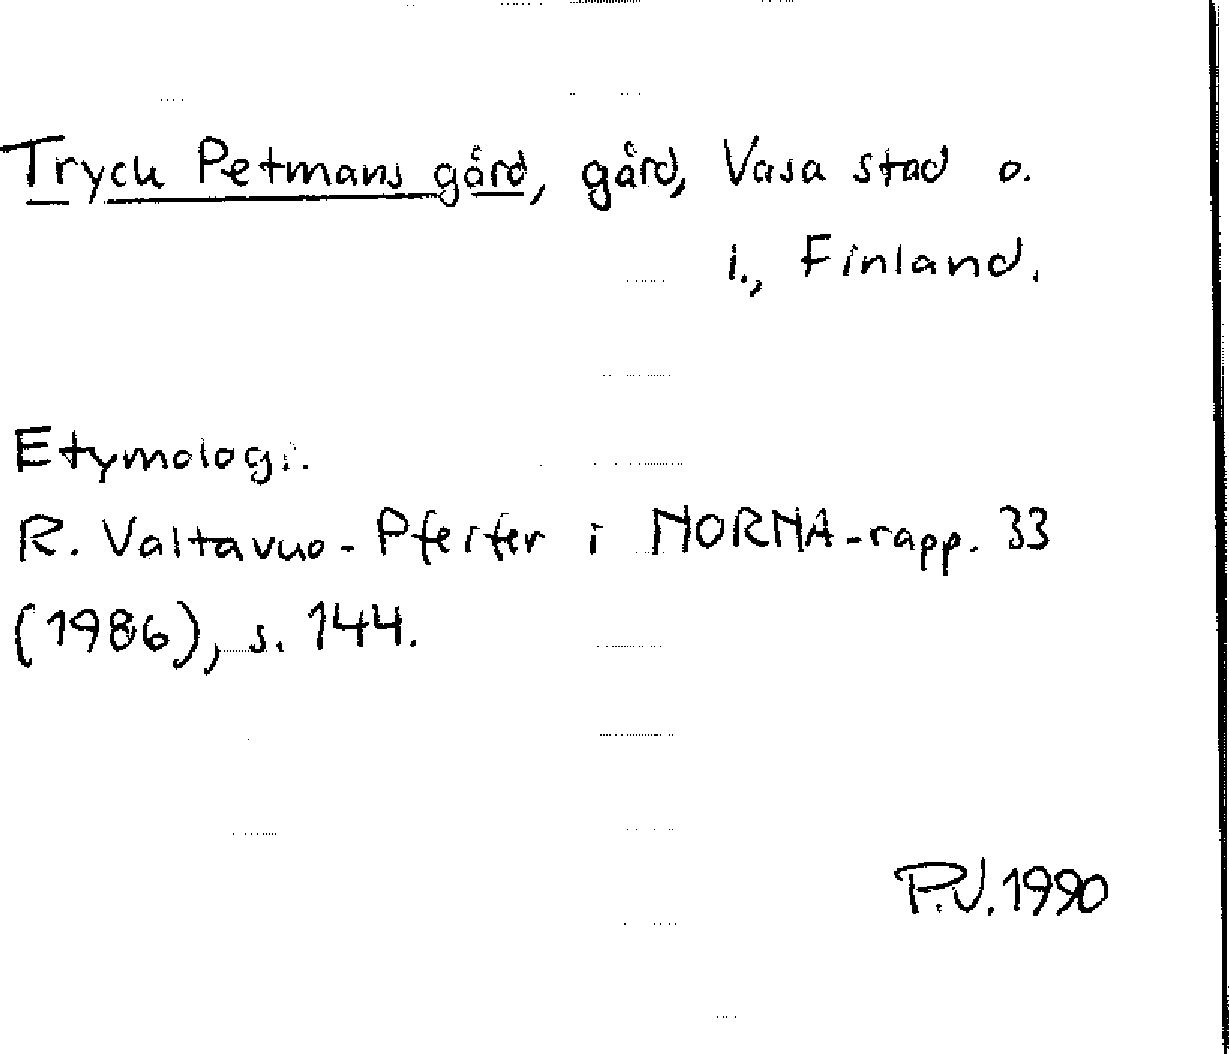 Tryck Petmans gård, gård, Vasa stad o.
l., Finland.
Etymologi.
R. Valtavuo-Pfeifer i NORNA-rapp. 33
(1986), s. 144.
P.J. 1990